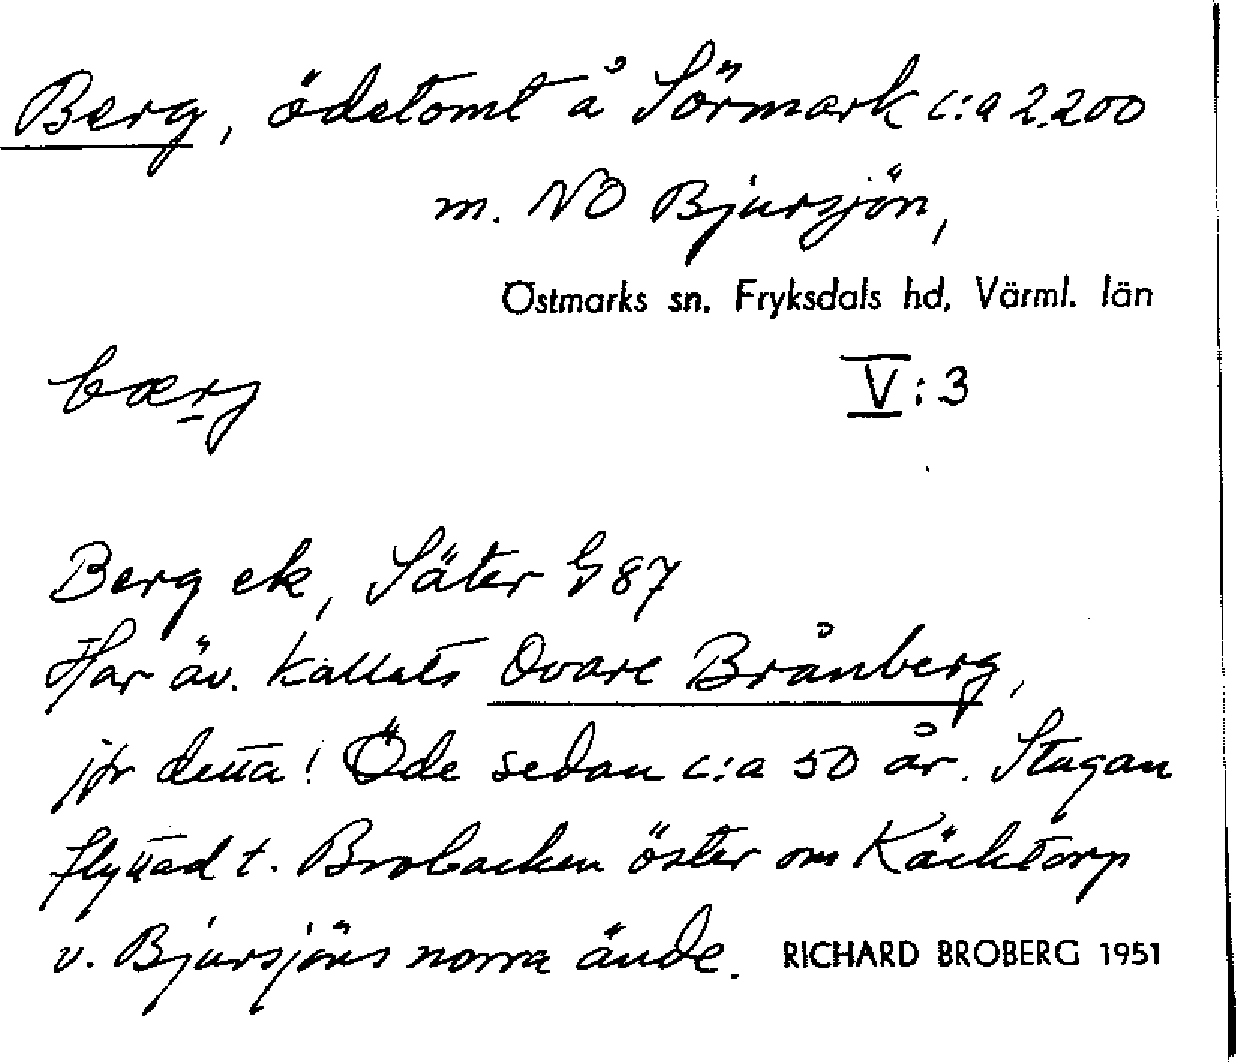 Berg, ödetomt å Sörmark c:a 2.200
m. NÖ Bjursjön,
Östmarks sn. Fryksdals hd, Värml. län
bærj
V:3
Berg ek, Säter G 87
Har äv. kallats Ovare Brånberg,
jfr detta! Öde sedan c:a 50 år. Stugan
flyttad t. Brobacken öster om Käcktorp
v. Bjursjöns norra ände. RICHARD BROBERG 1951